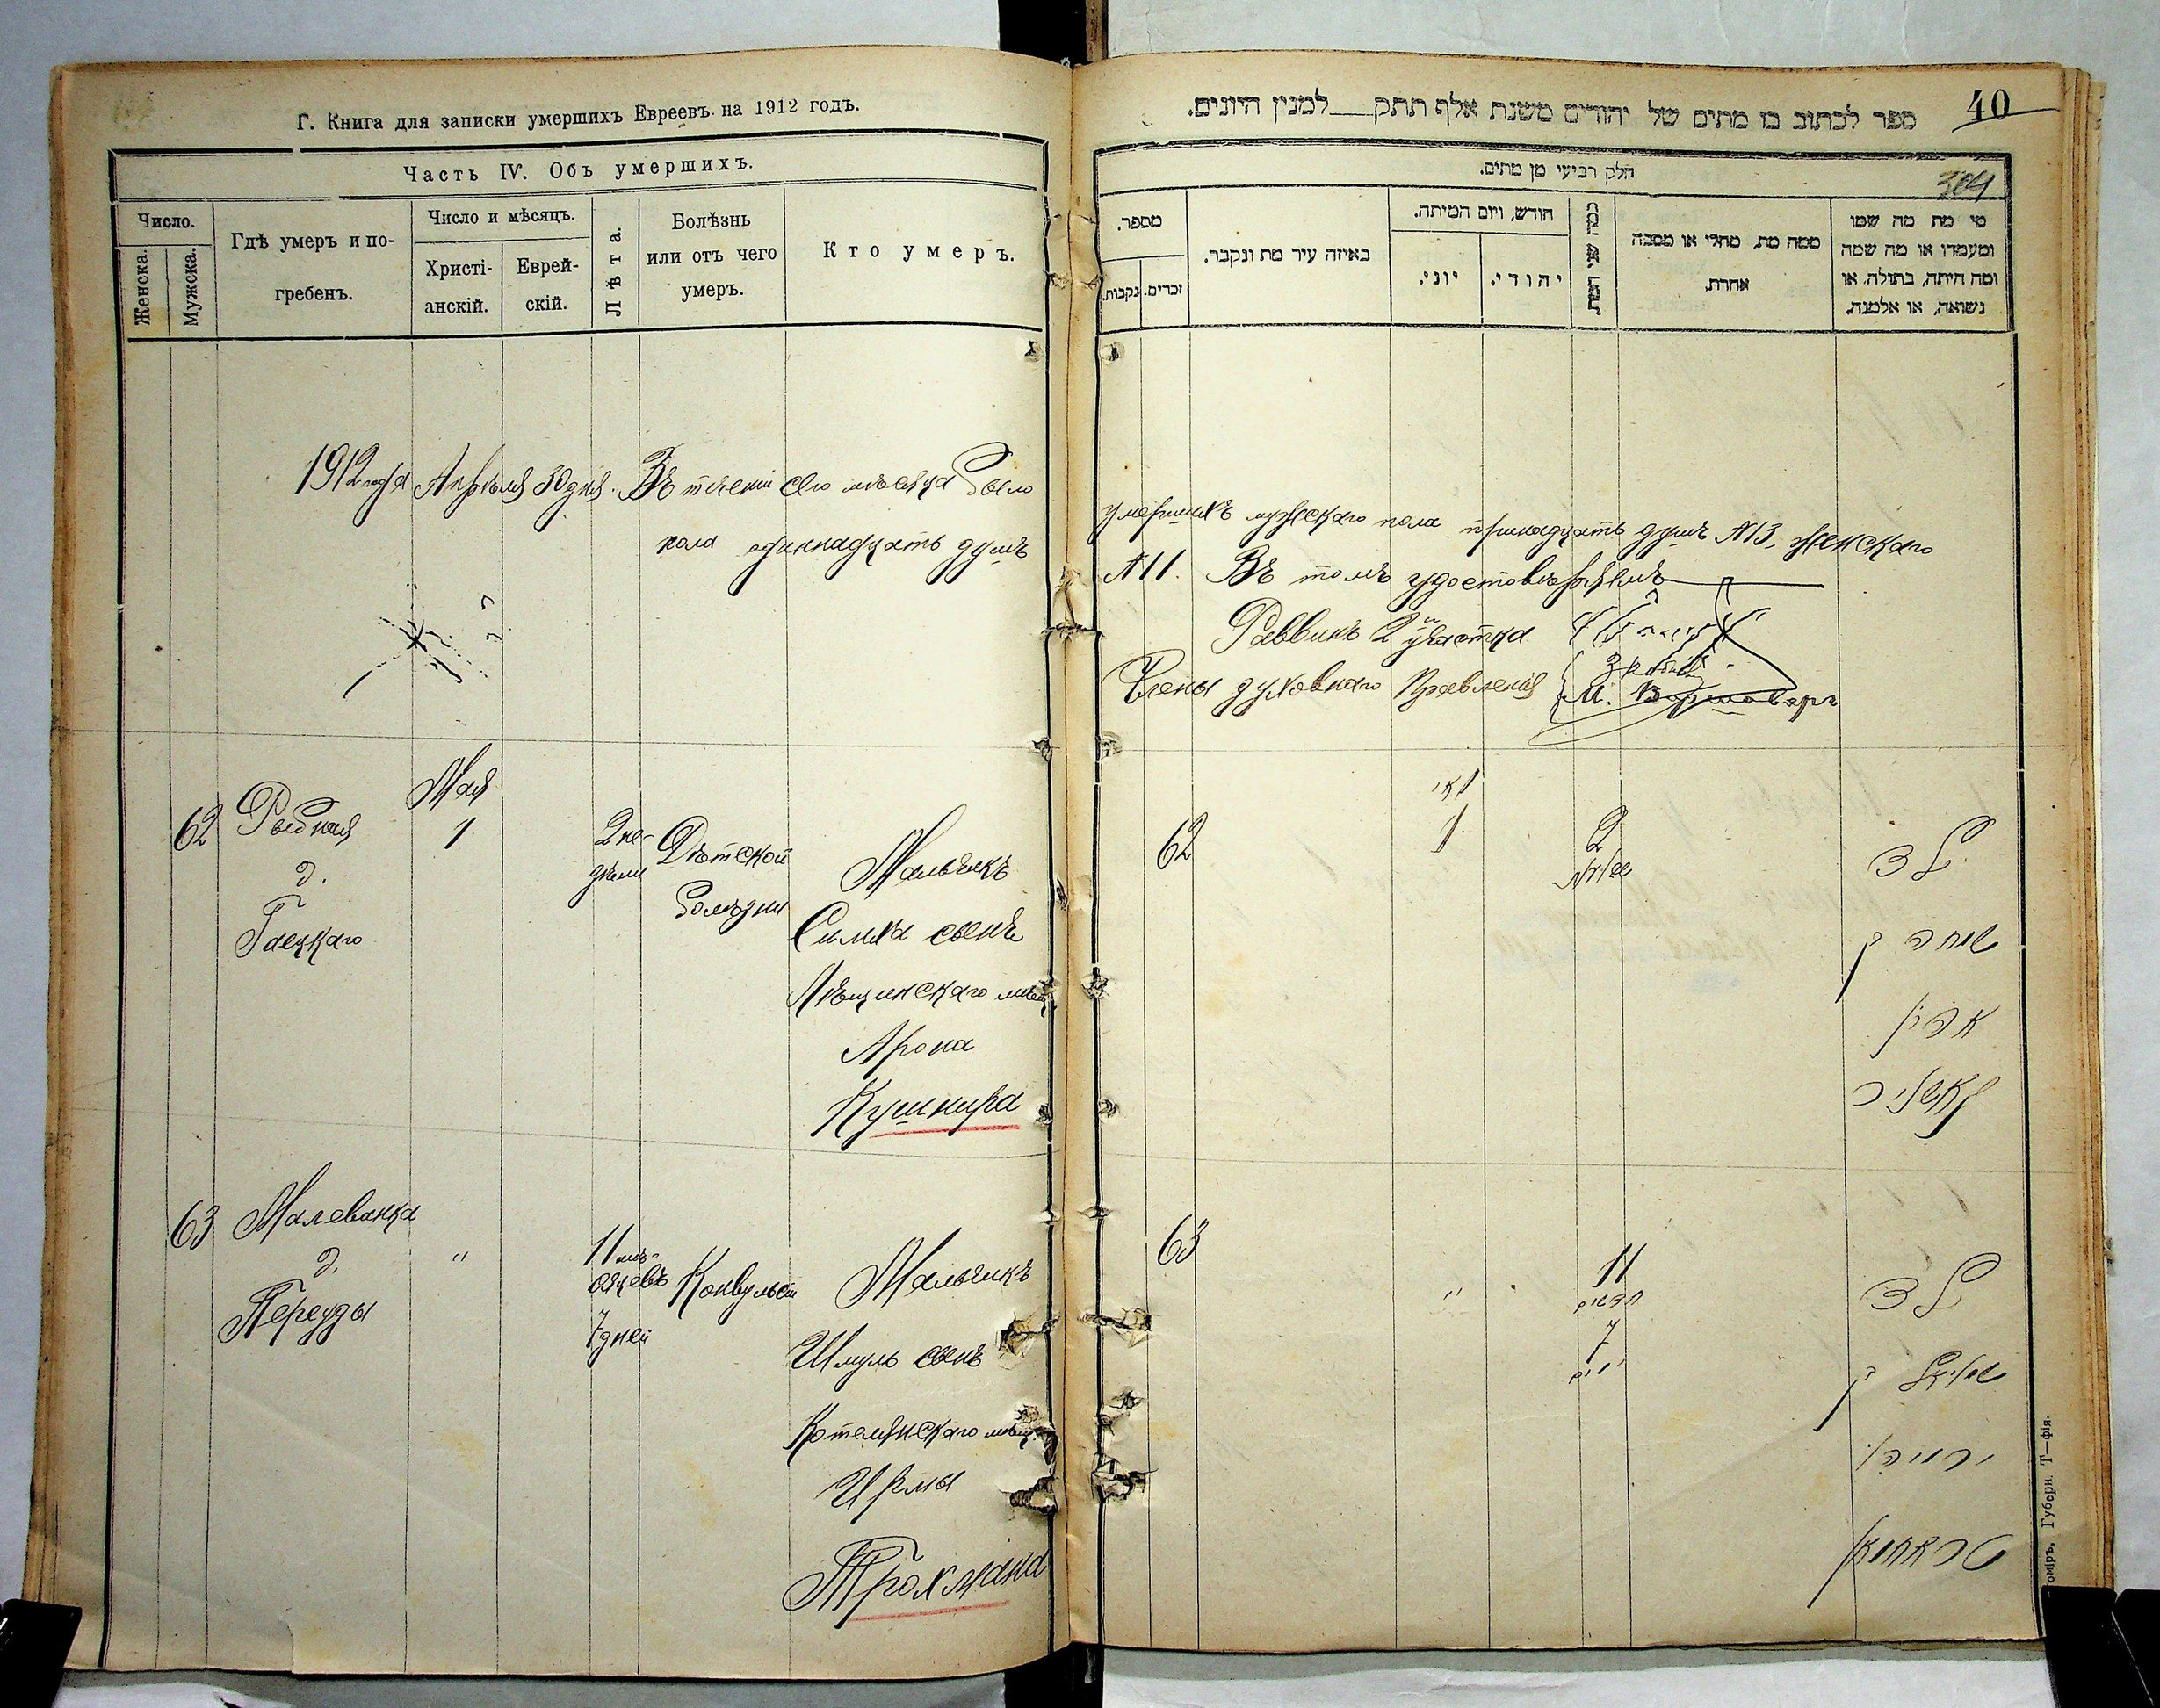 Г. Книга для записки умершихъ Евреевъ на 1912 годъ.
Часть IV. Объ умершихъ.
Число.
Женска.
Мужска.
Гдѣ умеръ и по-
гребенъ.
Число и мѣсяцъ.
Христі-
анскій.
Еврей-
скій.
Лѣта.
Болѣзнь
или отъ чего
умеръ.
Кто умеръ.
1912 года Апрѣля 30 дня. Въ теченіи сего мѣсяца было
пола одиннадцать душъ
Мая
62
Рыбная
д.
Гаецкаго
1
2 не-
дѣли
Дѣтской
болѣзни
Мальчикъ
Симха сынъ
Лѣщинскаго мѣщ.
Арона
Кушнира
63
Малеванка
д.
"
11 мѣ-
сяцевъ
7 дней
Конвульсіи
Мальчикъ
Шмуль сынъ
Котелянскаго мѣщ.
Ирмы
Трохмана
40
ספר לכתוב בו מתים של יהודים משנת אלף תתק למנין היונים.
304
חלק רביעי מן מתים.
מספר.
נקבות.
זכרים.
באיזה עיר מת ונקבר.
חודש, ויום המיתה.
יוני.
יהודי.
כמה שני המת
ממה מת, מחלי או מסבה
אחרת.
מי מת מה שמו
ומעמדו או מה שמה
ומה היתה, בתולה, או
נשואה, או אלמנה.
умершихъ мужскаго пола тринадцать душъ №13, женскаго
№11. Въ томъ удостовѣряемъ
Раввинъ 2го участка
Члены духовнаго Правленія
62
מאי
1
2
שבועות
ילד
שמחה בן
אהרן
קושניר
63
"
11
חדשים
7
ימים
ילד
שמואל בן
ירמיהו
טראחמאן
Губерн. Т—фія.